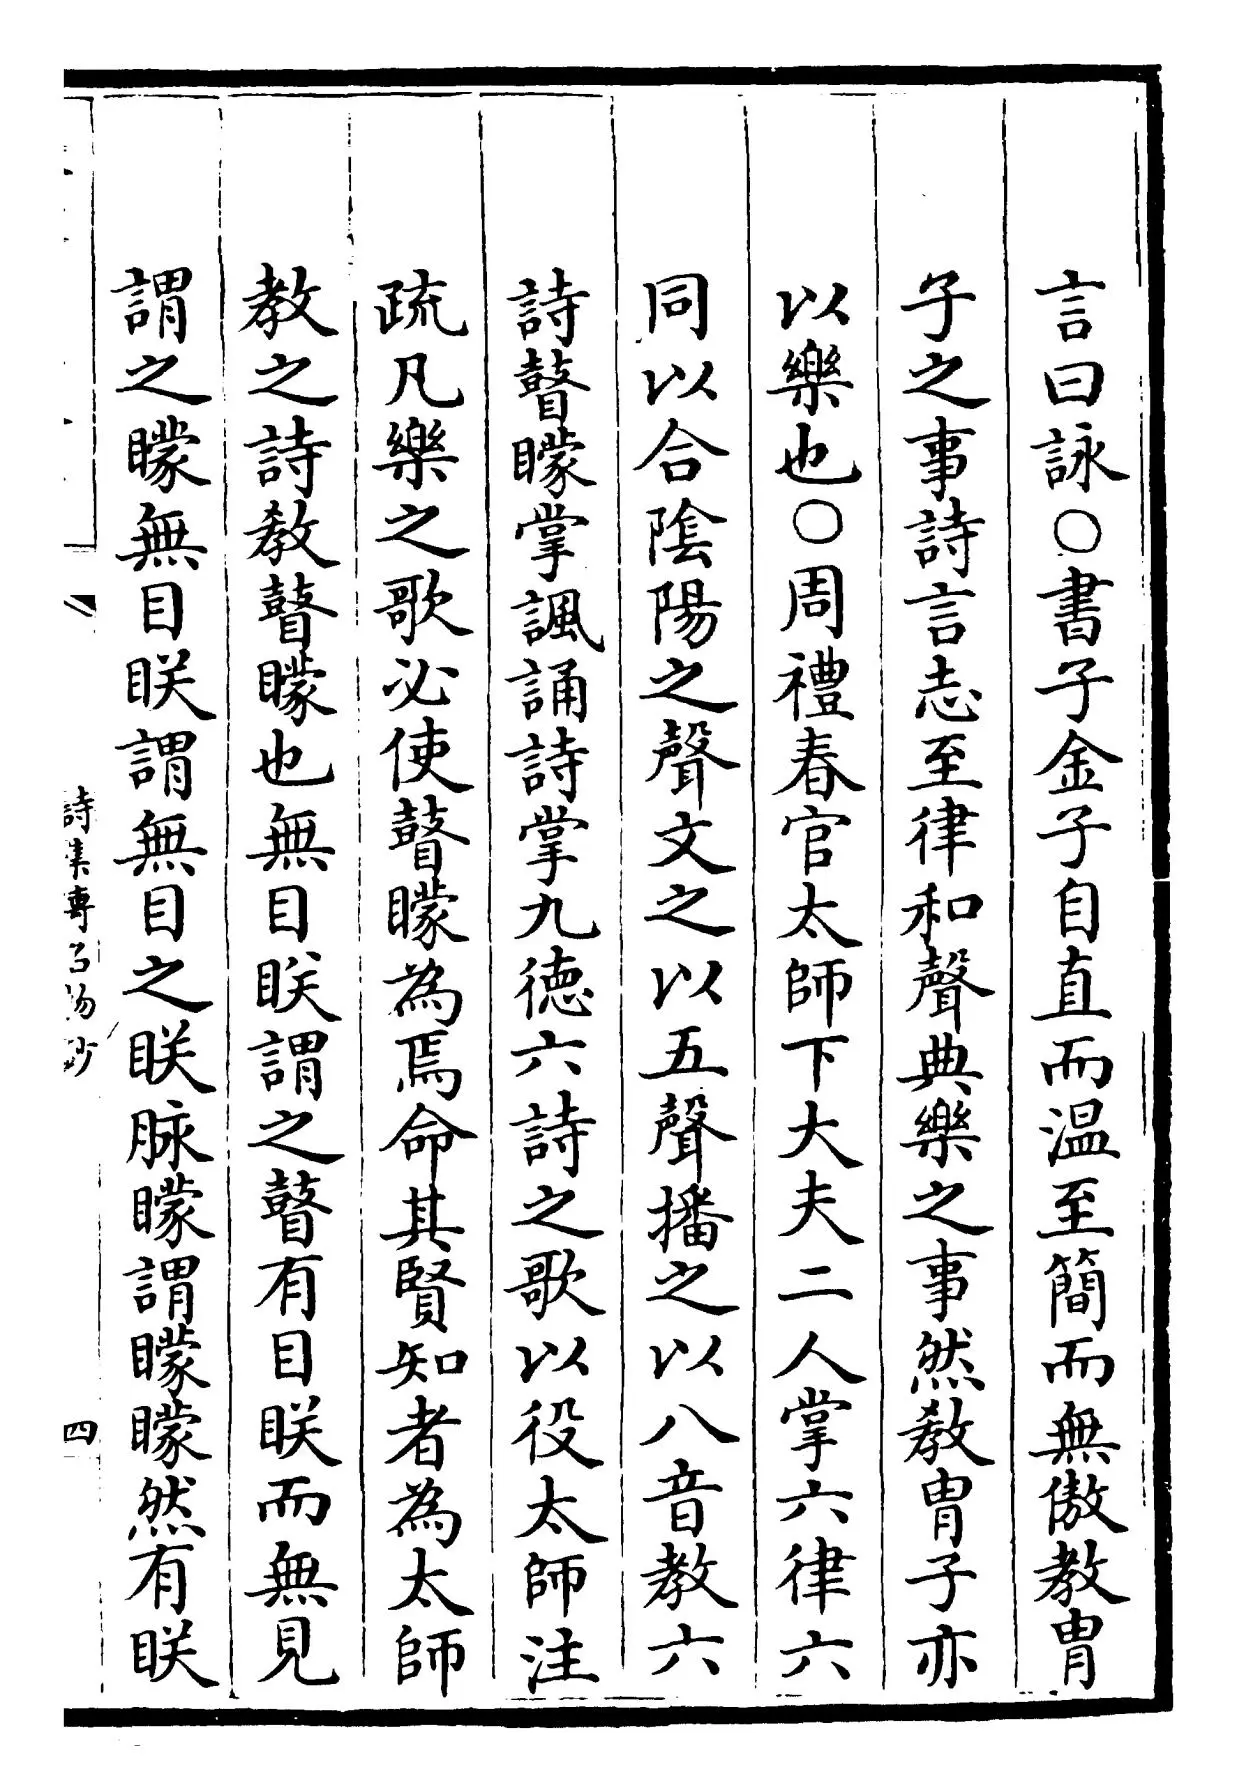 言曰詠○書子金子自直而温至簡而無傲教冑
子之事詩言志至律和聲典樂之事然教冑子亦
以樂也○周禮春官太師下大夫二人掌六律六
同以合陰陽之聲文之以五聲播之以八音教六
詩瞽矇掌諷誦詩掌九徳六詩之歌以役太師注
疏凡樂之歌必使瞽矇為焉命其賢知者為太師
教之詩教瞽矇也無目眹謂之瞽有目眹而無見
謂之矇無目眹謂無目之眹脉矇謂矇矇然有眹
詩集傳名物鈔
四